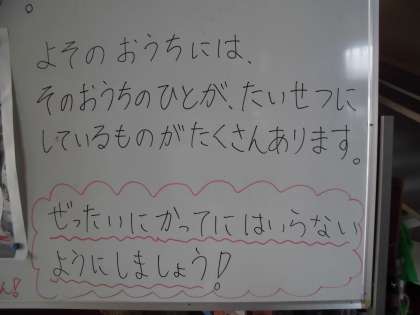 。
よそのおうちには、
そのおうちのひとが、たいせつに
しているものがたくさんあります。
ぜったいにかってにはいらない
ようにしましょう!
ん!